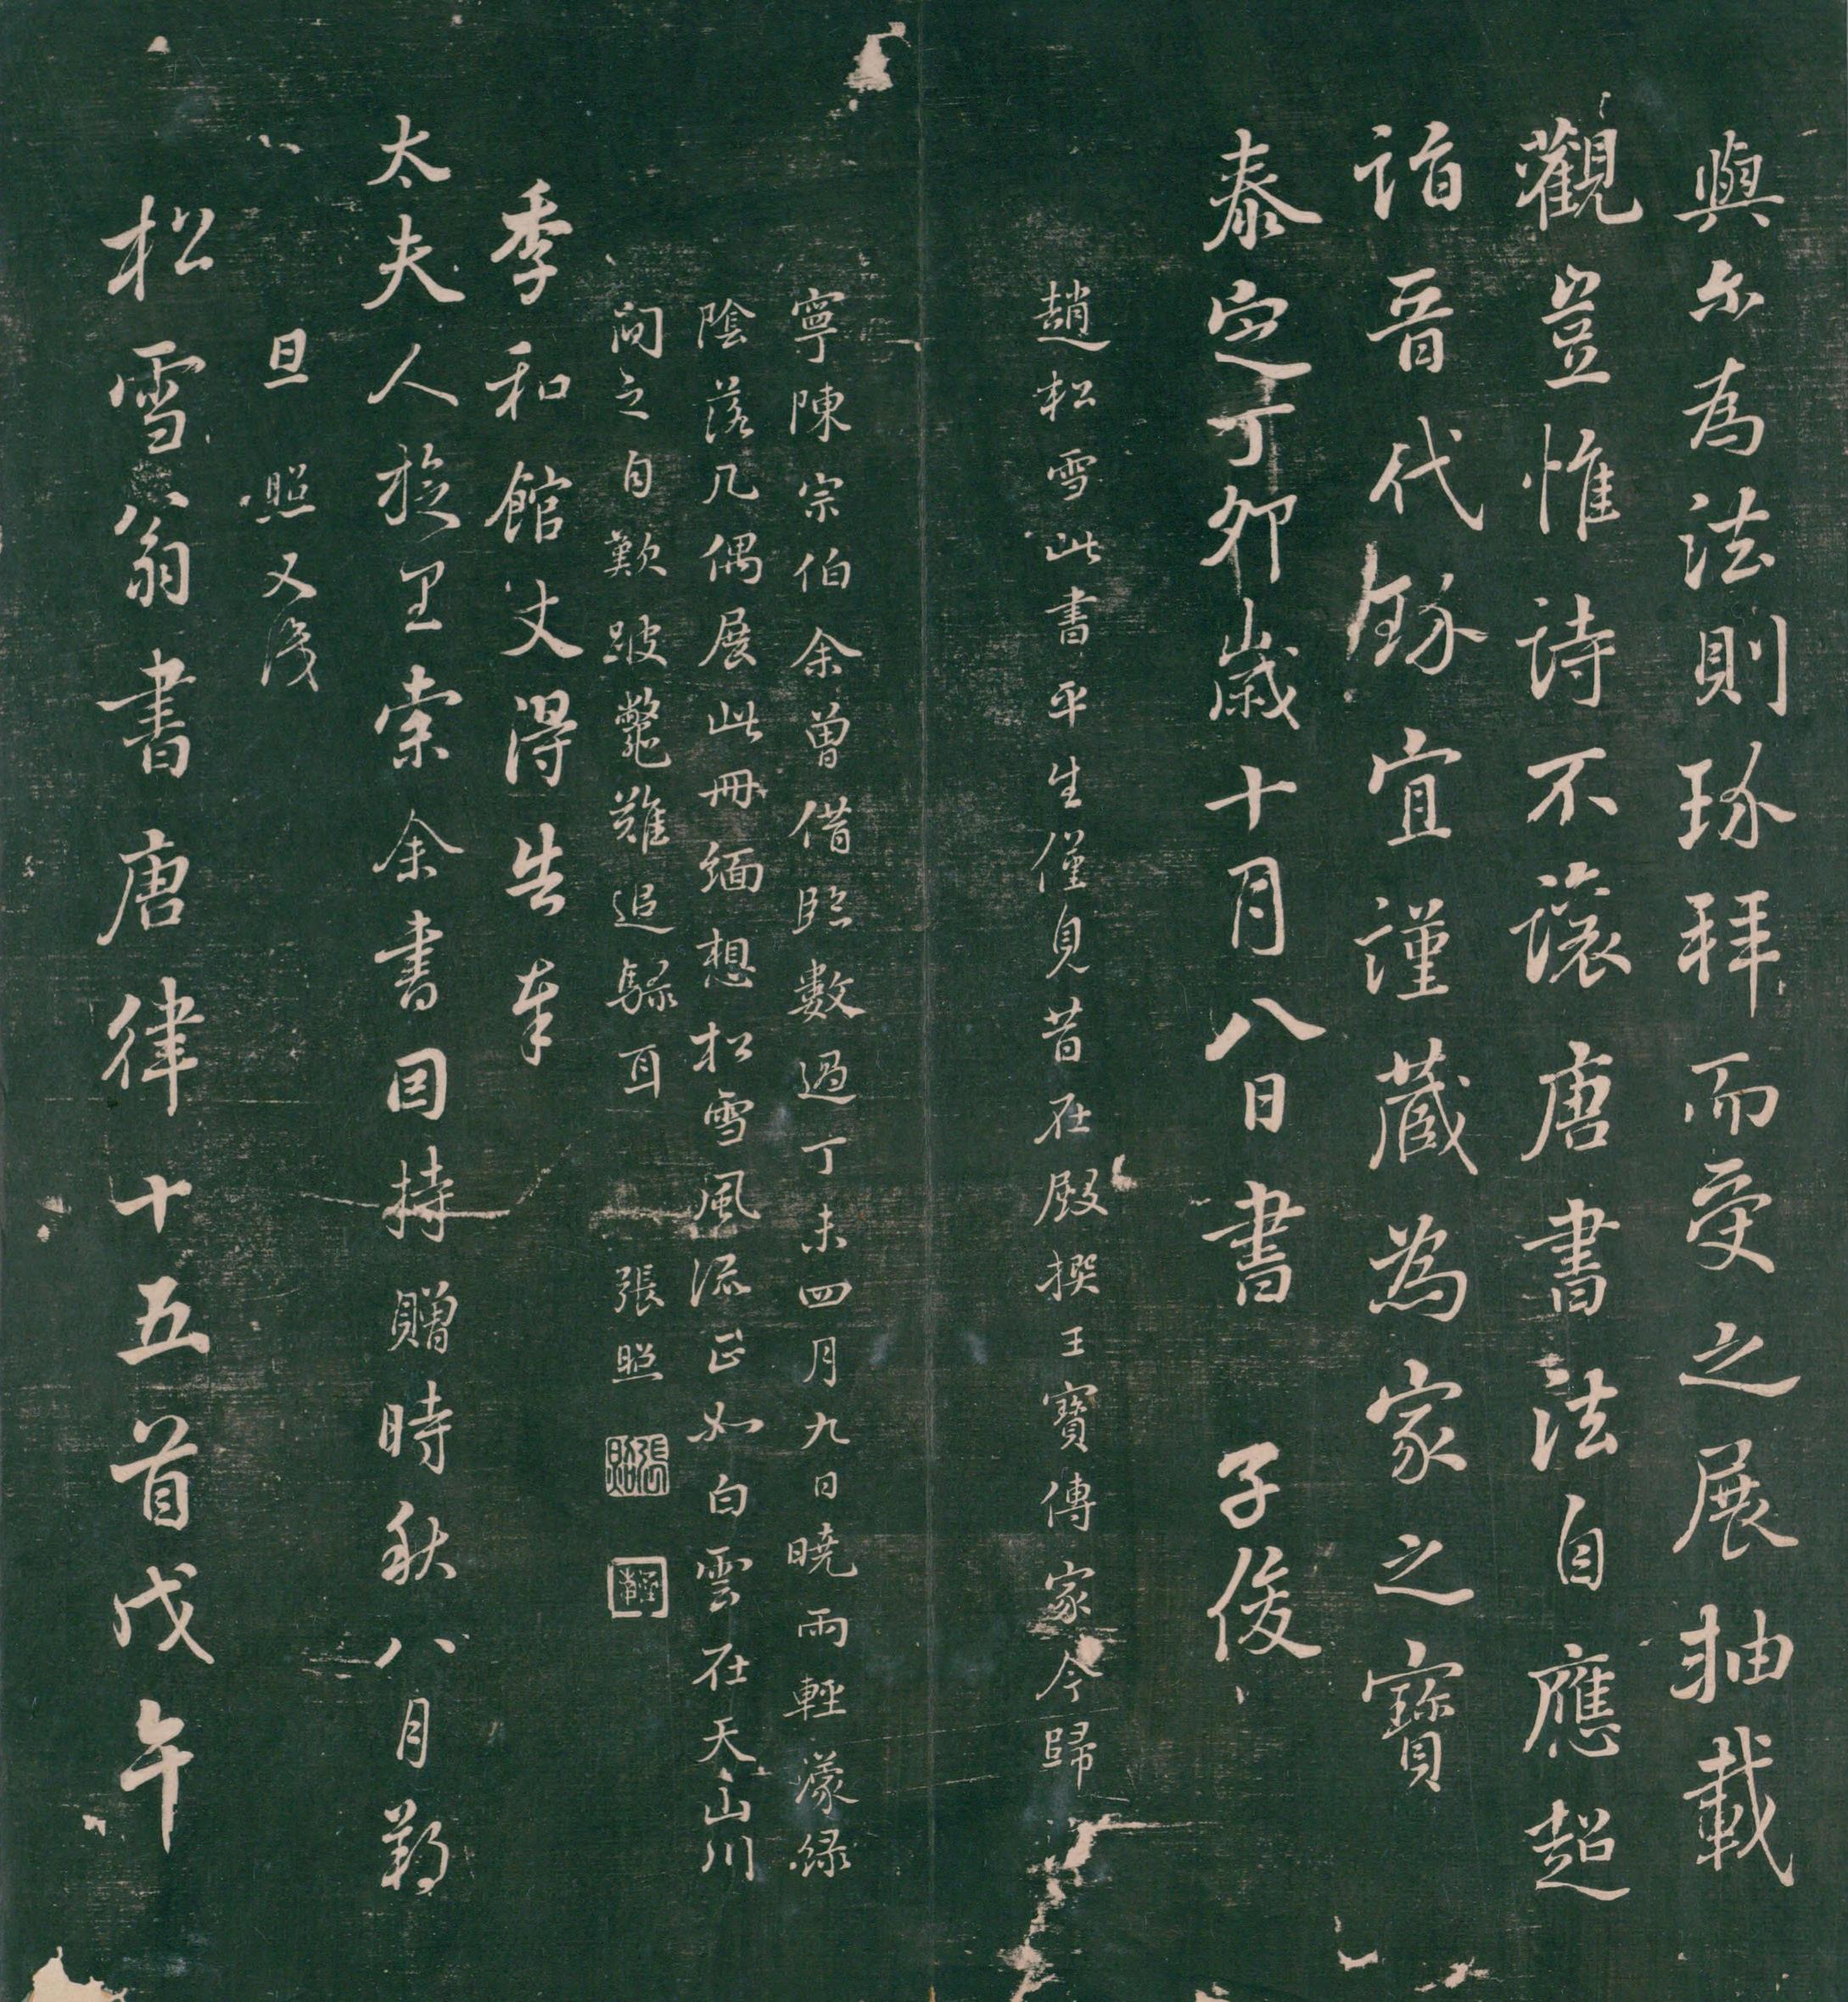 與尒為法則琢拜而受之展抽載
觀豈惟詩不讓唐書法自應超
詣晉代錄宜謹藏為家之寶
泰定丁卯歲十月八日書 子俊
趙松雪此書平生僅見昔在殿撰王寶傳家今歸
寧陳宗伯余曾借臨數過丁未四月九日曉雨輕濛綠
陰落几偶展此冊緬想松雪風流正如白雲在天山川
間之自歎跛鼈難追騄耳 張照
張照
季和館丈得告奉
太夫人於里索余書因持贈時秋八月朔
旦 照又識
松雪翁書唐律十五首戊午